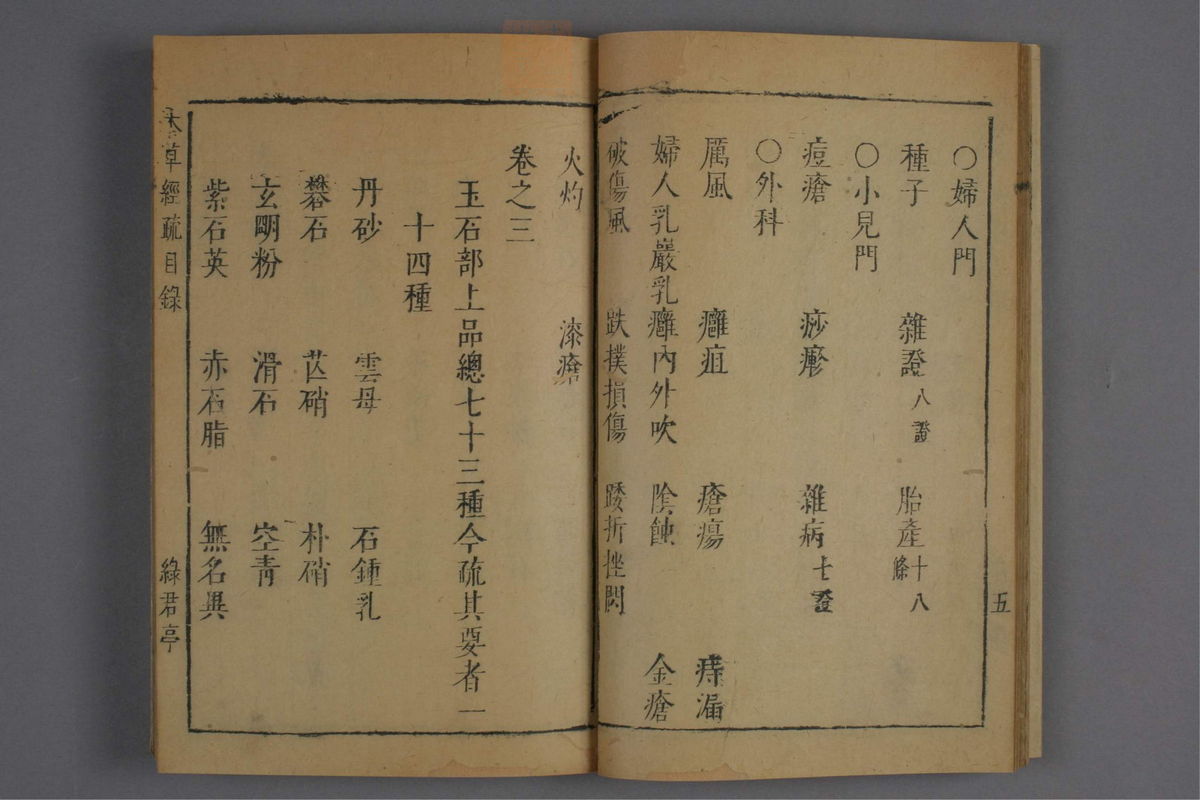 五
○婦人門
種子 雜證八證 胎產十八條
○小兒門
痘瘡 痧㾏 雜病七證
○外科
厲風 癰疽 瘡瘍 痔漏
婦人乳巖乳癰內外吹 陰蝕 金瘡
破傷風 跌撲損傷 踒折挫閃
火灼 漆瘡
卷之三
玉石部上品總七十三種今疏其要者一
十四種
丹砂 雲母 石鍾乳
礬石 芒硝 朴硝
玄明粉 滑石 空青
紫石英 赤石脂 無名異
本草經疏目錄 綠君亭